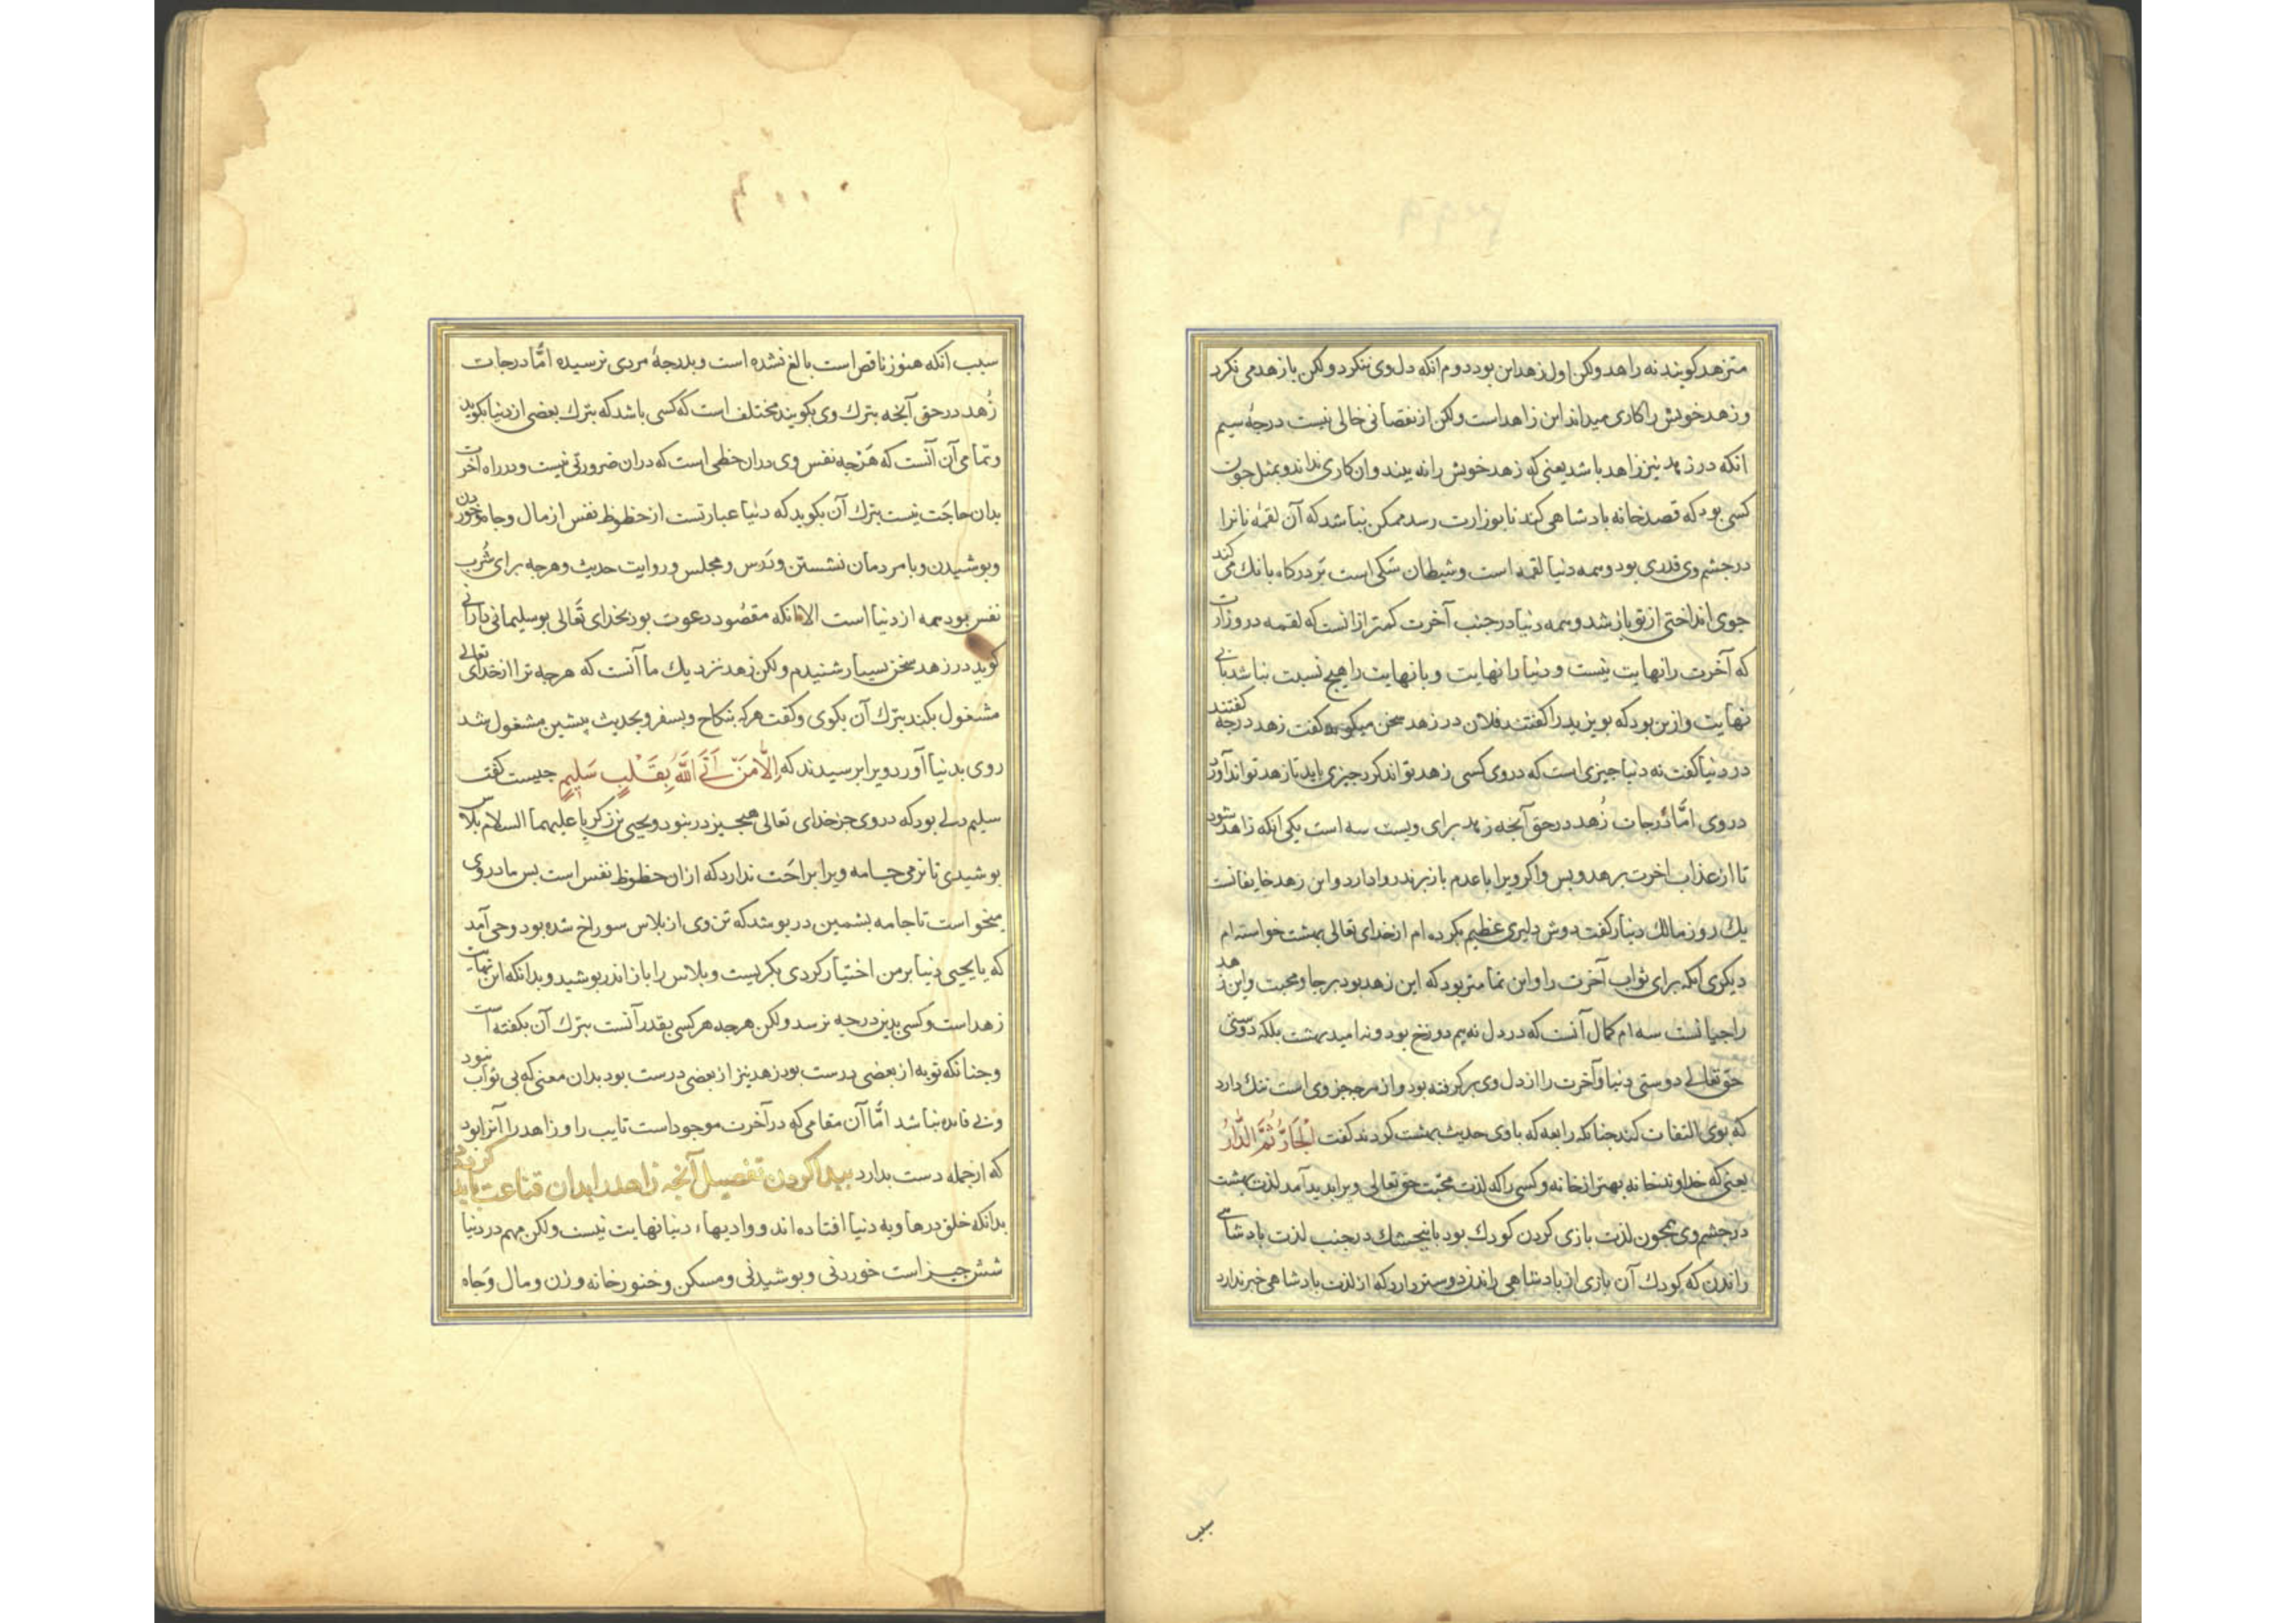 متزهد کویند نه زاهد ولکن اول زهد این بود دوم انکه دل وی ننکرد ولکن با زهد می نکرد
و زهد خویش را کاری میداند این زاهد است ولکن از نقصانی خالی نیست درجهٔ سیم
انکه در زهد نیز زاهد باشد یعنی که زهد خویش را نه بیند و ان کاری نداند و بمثل جون
کسی بود که قصد خانه بادشاهی کند تا بوزارت رسد ممکن نباشد که آن لقمهٔ نانرا
در جشم وی قدری بود و همه دنیا لقمه است و شیطان سکی است بر درکاه بانك می کند
جوی انداختی از تو باز شد و همه دنیا در جنب آخرت کمتر ازانست که لقمه در وزارت
که آخرت را نهایت نیست و دنیا را نهایت و با نهایت را هیج نسبت نباشد با بی
نهایت و ازین بود که بویزید را کفتند فلان در زهد سخن میکوید کفت زهد درجه کفتند
در دنیا کفت نه دنیا جیزی است که در وی کسی زهد تواند کرد جیزی باید تا زهد تواند آورد
در وی امّا درجات زُهد در حق آنجه زهد برای ویست سه است یکی انکه زاهد شود
تا از عذاب اخرت برهد و بس و اکر ویرا با عدم باز برند روا دارد و این زهد خایفانست
یك روز مالك دینار کفت دوش دلیری عظیم بکرده ام از خدای تعالی بهشت خواسته ام
دیکری انکه برای ثواب آخرت را و این تمامتر بود که این زهد بود برجا و محبت و این زهد
راجیانست سه ام کمال آنست که در دل نه بیم دوزخ بود و نه امید بهشت بلکه دوستی
حق تعالی دوستی دنیا و آخرت را از دل وی بر کرفته بود و از هرجه جز وی است ننك دارد
که بوی التفات کند جنانکه رابعه که با وی حدیث بهشت کردند کفت اَلْجَارُ ثُمَّ الدَّارُ
یعنی که خداوند خانه بهتر از خانه و کسی را که لذت محبّت حق تعالی ویرا بدید آمد لذت بهشت
در جشم وی همجون لذت بازی کردن کودك بود با بنجشك در جنب لذت بادشاهی
راندن که کودك آن بازی از بادشاهی راندن دوستر دارد که از لذت بادشاهی خبر ندارد
سبب
سبب انکه هنوز ناقص است بالغ نشده است و بدرجهٔ مردی نرسیده امّا درجات
زُهد در حق آنجه بترك وی بکویند مختلف است که کسی باشد که بترك بعضی از دنیا بکوید
و تمامی آن آنست که هَرْجه نفس وی دران حظی است که دران ضرورتی نیست و در راه آخرت
بدان حاجَت نیست بترك آن بکوید که دنیا عبارتست از حظوظ نفس از مال و جاه و خوردن
و بوشیدن و با مردمان نشستن و دَرس و مجلس و روایت حدیث و هرجه برای شُرب
نفس بود همه از دنیا است الا انکه مقصُود دعوت بود بخدای تَعالی بوسلیمانی دارانی
کوید در زهد سخن بسیار شنیدم ولکن زهد نزدیك ما آنست که هرجه ترا از خدای تعالی
مشغول بکند بترك آن بکوی و کفت هرکه بنکاح و بسفر و بحدیث بیشین مشغول شد
روی بدنیا آورد ویرا برسیدند که اِلَّا مَنْ اَتَی اللّٰهَ بِقَلْبٍ سَلِیمٍ جیست کفت
سلیم دلی بود که در وی جز خدای تعالی هیجیز در نبود و یحیی بن زکریا علیهما السلام بلاس
بوشیدی تا نرمی جامه ویرا براحَت ندارد که ازان حظوظ نفس است بس مادر وی
میخواست تا جامه بشمین دربوشد که تن وی از بلاس سوراخ شده بود وحی آمد
که یا یحیی دنیا بر من اختیار کردی بکریست و بلاس را باز اندر بوشید و بدانکه این نهایت
زهد است و کسی بدین درجه نرسد ولکن هرجه هر کسی بقدر آنست بترك آن بکفته است
و جنانکه توبه از بعضی درست بود زهد نیز از بعضی درست بود بدان معنی که بی ثواب نبود
و بی فایده نباشد امّا آن مقامی که در آخرت موجود است تایب را و زاهد را آنرا بود
که از جمله دست بدارد بیدا کردن تفصیل آنجه زاهد را بدان قناعت باید کردن
بدانکه خلق در هاویه دنیا افتاده اند و وادیهاء دنیا نهایت نیست ولکن مهم در دنیا
شش جیز است خوردنی و بوشیدنی و مسکن و خنور خانه و زن و مال وَجاه